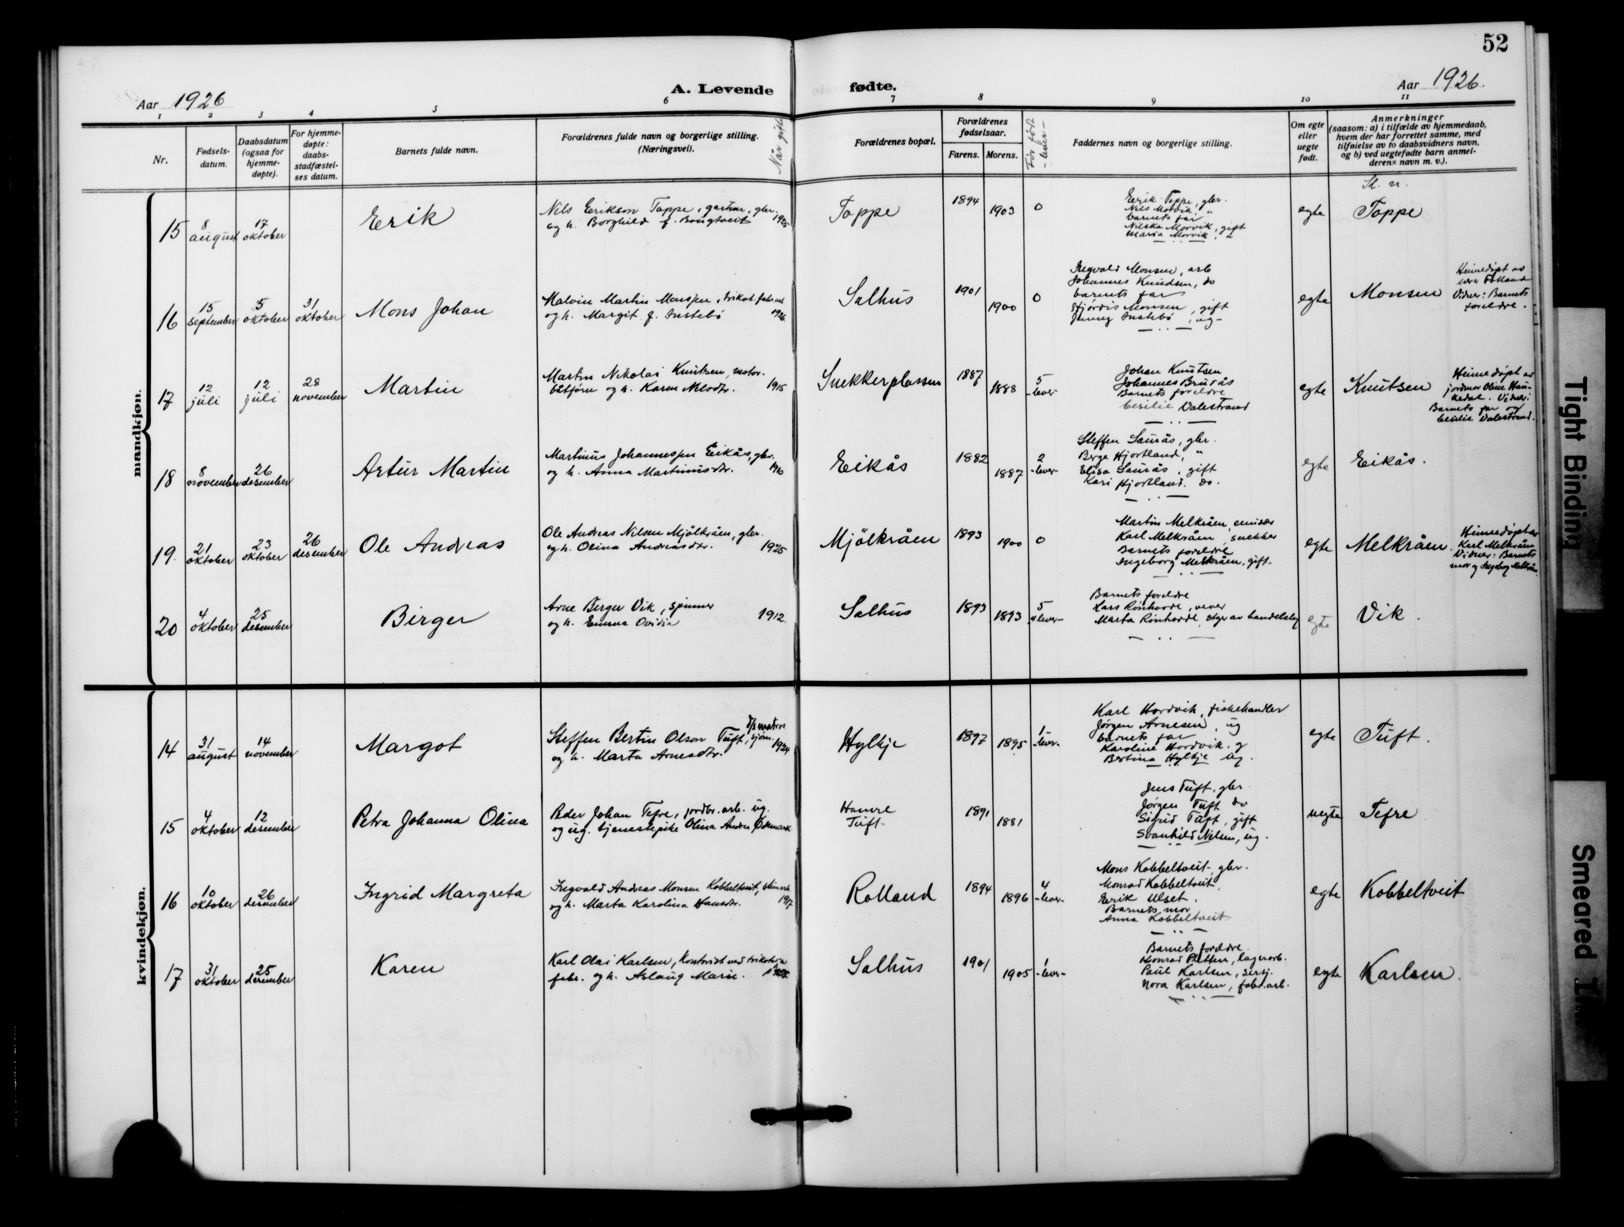 52
Aar 1926
A. Levende fødte.
Aar 1926.
1 2 3 4 5 6 7 8 9 10 11
Nr.
Fødsels-
datum.
Daabsdatum
(ogsaa for
hjemme-
døpte).
For hjemme-
døpte:
daabs-
stadfæstel-
ses datum.
Barnets fulde navn.
Forældrenes fulde navn og borgerlige stilling.
(Næringsvei).
Når gift
Forældrenes bopæl.
Forældrenes
fødselsaar.
Farens. Morens.
Før født
Faddernes navn og borgerlige stilling.
Om egte
eller
uegte
født.
Anmerkninger
(saasom: a) i tilfælde av hjemmedaab,
hvem der har forrettet samme, med
tilføielse av to daabsvidners navn,
og b) ved uegtefødte barn anmel-
derens navn m. v.).
Sl. n.
mandkjøn.
15
8
august
17
oktober
Erik
Nils Erikson Toppe, gartner, gbr.
og h. Borghild f. Bongtveit
Toppe
1894
1903
0
Erik Toppe, gbr.
Nils Morvik "
barnets far
Nilska Morvik, gift
Maria Morvik
egte
Toppe
16
15
september
5
oktober
31
oktober
Mons Johan
Malvin Martin Monssen, trikot.
og h. Margit f. Instebø
1926
Salhus
1901
1900
0
Ingvald Monsen, arb
Johannes Knudsen, do
barnets far
Hjørdis Monsen, gift
Jenny Instebø, ug
egte
Monsen
Heimedøpt av
Vidner: Barnets
foreldre.
17
12
juli
12
juli
28
november
Martin
Martin Nikolai Knutsen, motor-
båtfører og h. Karen Olsdtr.
1915
Snekkerplassen
1887
1888
5
-lever
Johan Knutsen
Johannes Brurås
Barnets foreldre
Cecilie Dalestrand
egte
Knutsen
Heimedøpt av
jordmor Oline Hau-
kedal. Vidner:
Barnets far og
Cecilie Dalestrand.
18
8
november
26
desember
Artur Martin
Martinus Johannessen Eikås, gbr.
og h. Anna Martinusdtr.
1910
Eikås
1882
1887
2
-lever
Steffen Saurås, gbr.
Brge Hjortland, "
Elisa Saurås, gift
Kari Hjortland. do.
egte
Eikås.
19.
21
oktober
23
oktober
26
desember
Ole Andreas
Ole Andreas Nilsen Mjölkråen, gbr.
og h. Olina Andreasdtr.
1925
Mjölkråen
1893
1900
0
Martin Melkråen, emisær
Karl Melkråen, snekker
Barnets foreldre
Ingeborg Melkråen, gift.
egte
Melkråen.
Heimedøpt av
Karl Melkråen
Vidner: Barnets
mor og Ingeborg Melkråen.
20
4
oktober
25
desember
Birger
Arne Berger Vik, spinner
og h. Emma Ovidia
1912.
Salhus
1893
1893
5
-lever-
Barnets foreldre
Lars Rønhovde, vever
Marta Rønhovde, styr av handelslag
egte
Vik.
kvindekjøn.
14
31
august
14
november
Margot
Steffen Bertin Olson Tuft,
og h. Marta Arnesdtr.
1924
Hylkje
1897
1895
1
-lever-
Karl Hordvik, fiskehandler
Jörgen Arnesen, ug
barnets far
Karoline Hordvik. g
Bertina Hylkje ug.
egte
Tuft.
15
4
oktober
12
desember
Petra Johanna Olina
Peder Johan Tefre, jordbr. arb. ug.
og ug. tjenestepike Olina Andrea
Hamre
Tuft.
1891
1881
Jens Tuft, gbr.
Jörgen Tuft do
Sigrid Tuft, gift
Svanhild Nilsen, ug.
uegte
Tefre.
16
10
oktober
26
desember
Ingrid Margreta
Ingvald Andreas Monsen Kobbeltveit,
og h. Marta Karolina Hansdtr.
Rolland
1894
1896
4
-lever-
Mons Kobbeltveit, gbr.
Monrad Kobbeltveit.
Erik Ulset.
Barnets mor
Anna Kobbeltveit
egte
Kobbeltveit
17
31
oktober
25
desember
Karen
Karl Olai Karlsen, kontorist ved trikotasje
fabr. og h. Aslaug Marie.
Salhus
1901
1905
1
-lever-
Barnets foreldre.
Konrad Pettersen, lagerarb.
Paul Karlsen, sersj.
Nora Karlsen, fabr.arb.
egte
Karlsen.
Tight Binding
Smeared